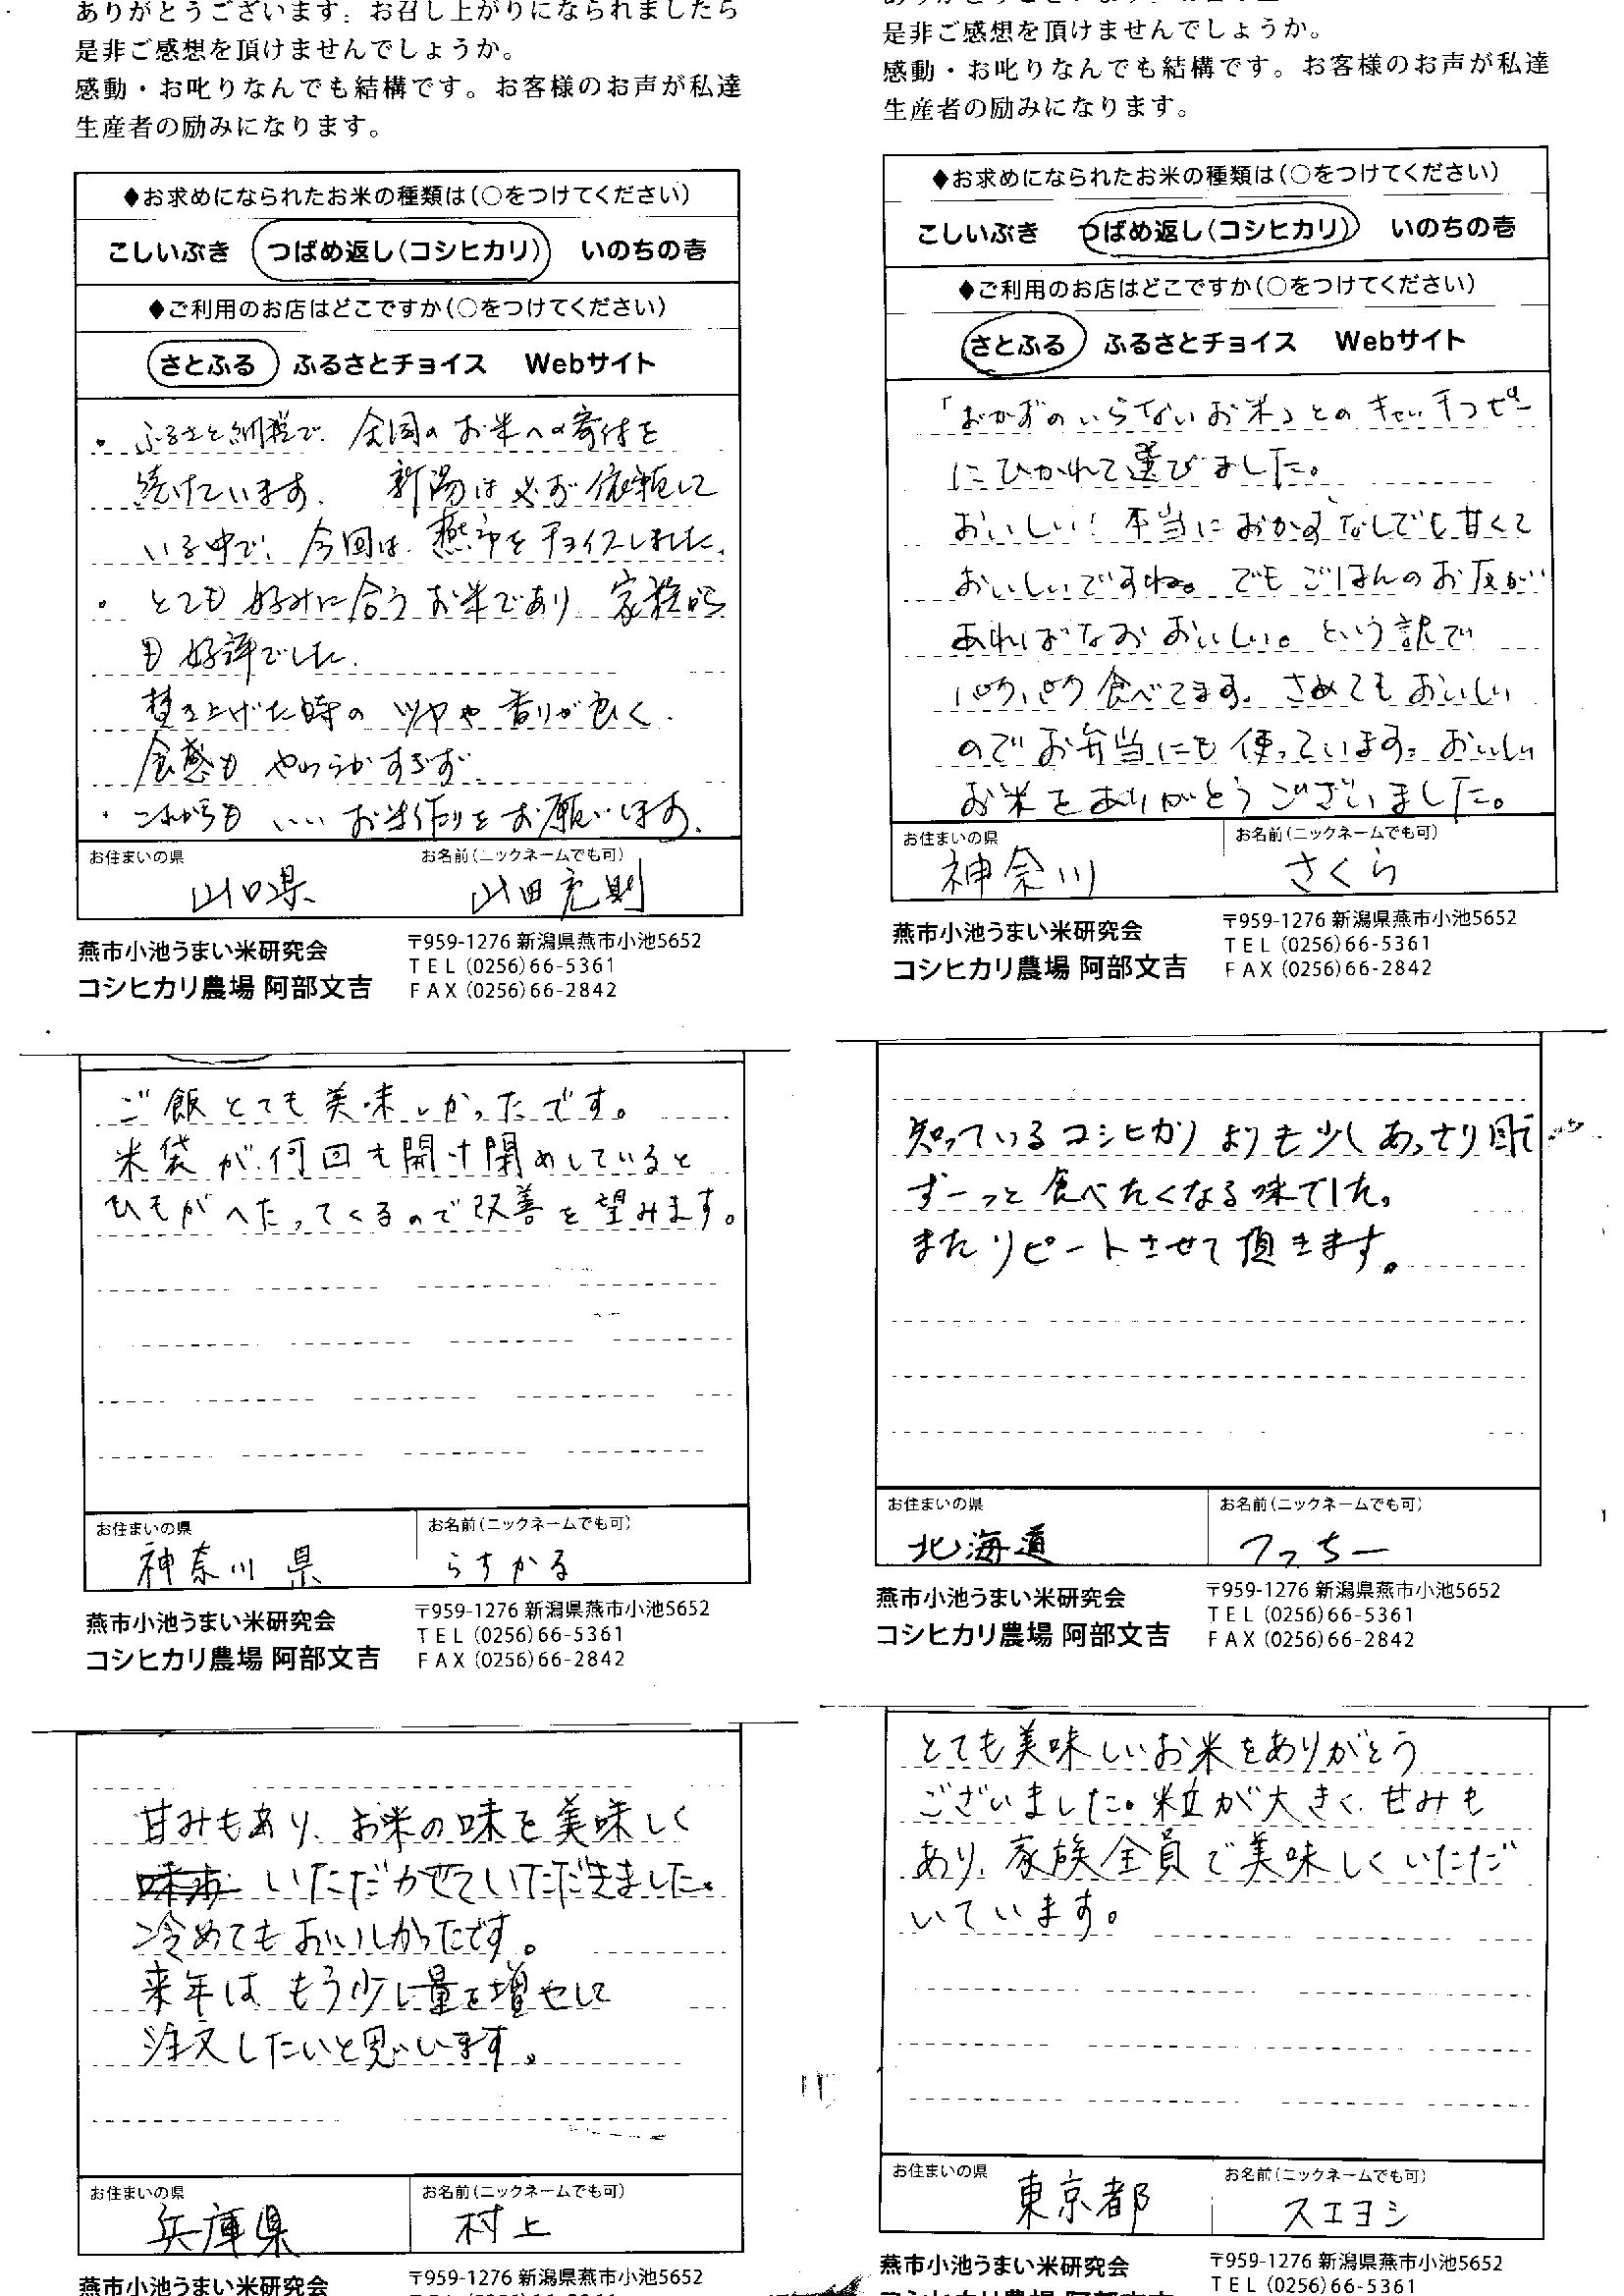 ありがとうございます。お召し上がりになられましたら
是非ご感想を頂けませんでしょうか。
感動・お叱りなんでも結構です。お客様のお声が私達
生産者の励みになります。
◆お求めになられたお米の種類は(○をつけてください)
こしいぶき つばめ返し(コシヒカリ) いのちの壱
◆ご利用のお店はどこですか(○をつけてください)
さとふる ふるさとチョイス Webサイト
・ふるさと納税で、全国のお米への寄付を
続けています。 新潟は必ず依頼して
いる中で、今回は、燕市をチョイスしました。
・とても好みに合うお米であり、家族から
も好評でした。
焚き上げた時の ツヤや香りが良く、
食感も やわらかすぎず
・これからも いい お米作りをお願いします。
お住まいの県 お名前(ニックネームでも可)
山口県 山田充則
燕市小池うまい米研究会 〒959-1276 新潟県燕市小池5652
TEL (0256)66-5361
コシヒカリ農場 阿部文吉 FAX (0256)66-2842
是非ご感想を頂けませんでしょうか。
感動・お叱りなんでも結構です。お客様のお声が私達
生産者の励みになります。
◆お求めになられたお米の種類は(○をつけてください)
こしいぶき つばめ返し(コシヒカリ) いのちの壱
◆ご利用のお店はどこですか(○をつけてください)
さとふる ふるさとチョイス Webサイト
「おかずのいらないお米」とのキャッチコピー
にひかれて選びました。
おいしい! 本当におかずなしでも甘くて
おいしいですね。でもごはんのお友が
あればなおおいしい。という訳で
パクパク食べてます。さめてもおいしい
のでお弁当にも使っています。おいしい
お米をありがとうございました。
お住まいの県 お名前(ニックネームでも可)
神奈川 さくら
燕市小池うまい米研究会 〒959-1276 新潟県燕市小池5652
TEL (0256)66-5361
コシヒカリ農場 阿部文吉 FAX (0256)66-2842
ご飯とても美味しかったです。
米袋が何回も開け閉めしていると
ひもがへたってくるので改善を望みます。
お住まいの県 お名前(ニックネームでも可)
神奈川県 らすかる
燕市小池うまい米研究会 〒959-1276 新潟県燕市小池5652
TEL (0256)66-5361
コシヒカリ農場 阿部文吉 FAX (0256)66-2842
知っているコシヒカリよりも少しあっさり目で
ずーっと食べたくなる味でした。
またリピートさせて頂きます。
お住まいの県 お名前(ニックネームでも可)
北海道
燕市小池うまい米研究会 〒959-1276 新潟県燕市小池5652
TEL (0256)66-5361
コシヒカリ農場 阿部文吉 FAX (0256)66-2842
甘みもあり、お米の味を美味しく
いただかせていただきました。
冷めてもおいしかったです。
来年はもう少し量を増やして
注文したいと思います。
お住まいの県 お名前(ニックネームでも可)
兵庫県 村上
燕市小池うまい米研究会 〒959-1276 新潟県燕市小池5652
とても美味しいお米をありがとう
ございました。粒が大きく、甘みも
あり、家族全員で美味しくいただ
いています。
お住まいの県 お名前(ニックネームでも可)
東京都 スエヨシ
燕市小池うまい米研究会 〒959-1276 新潟県燕市小池5652
TEL (0256)66-5361